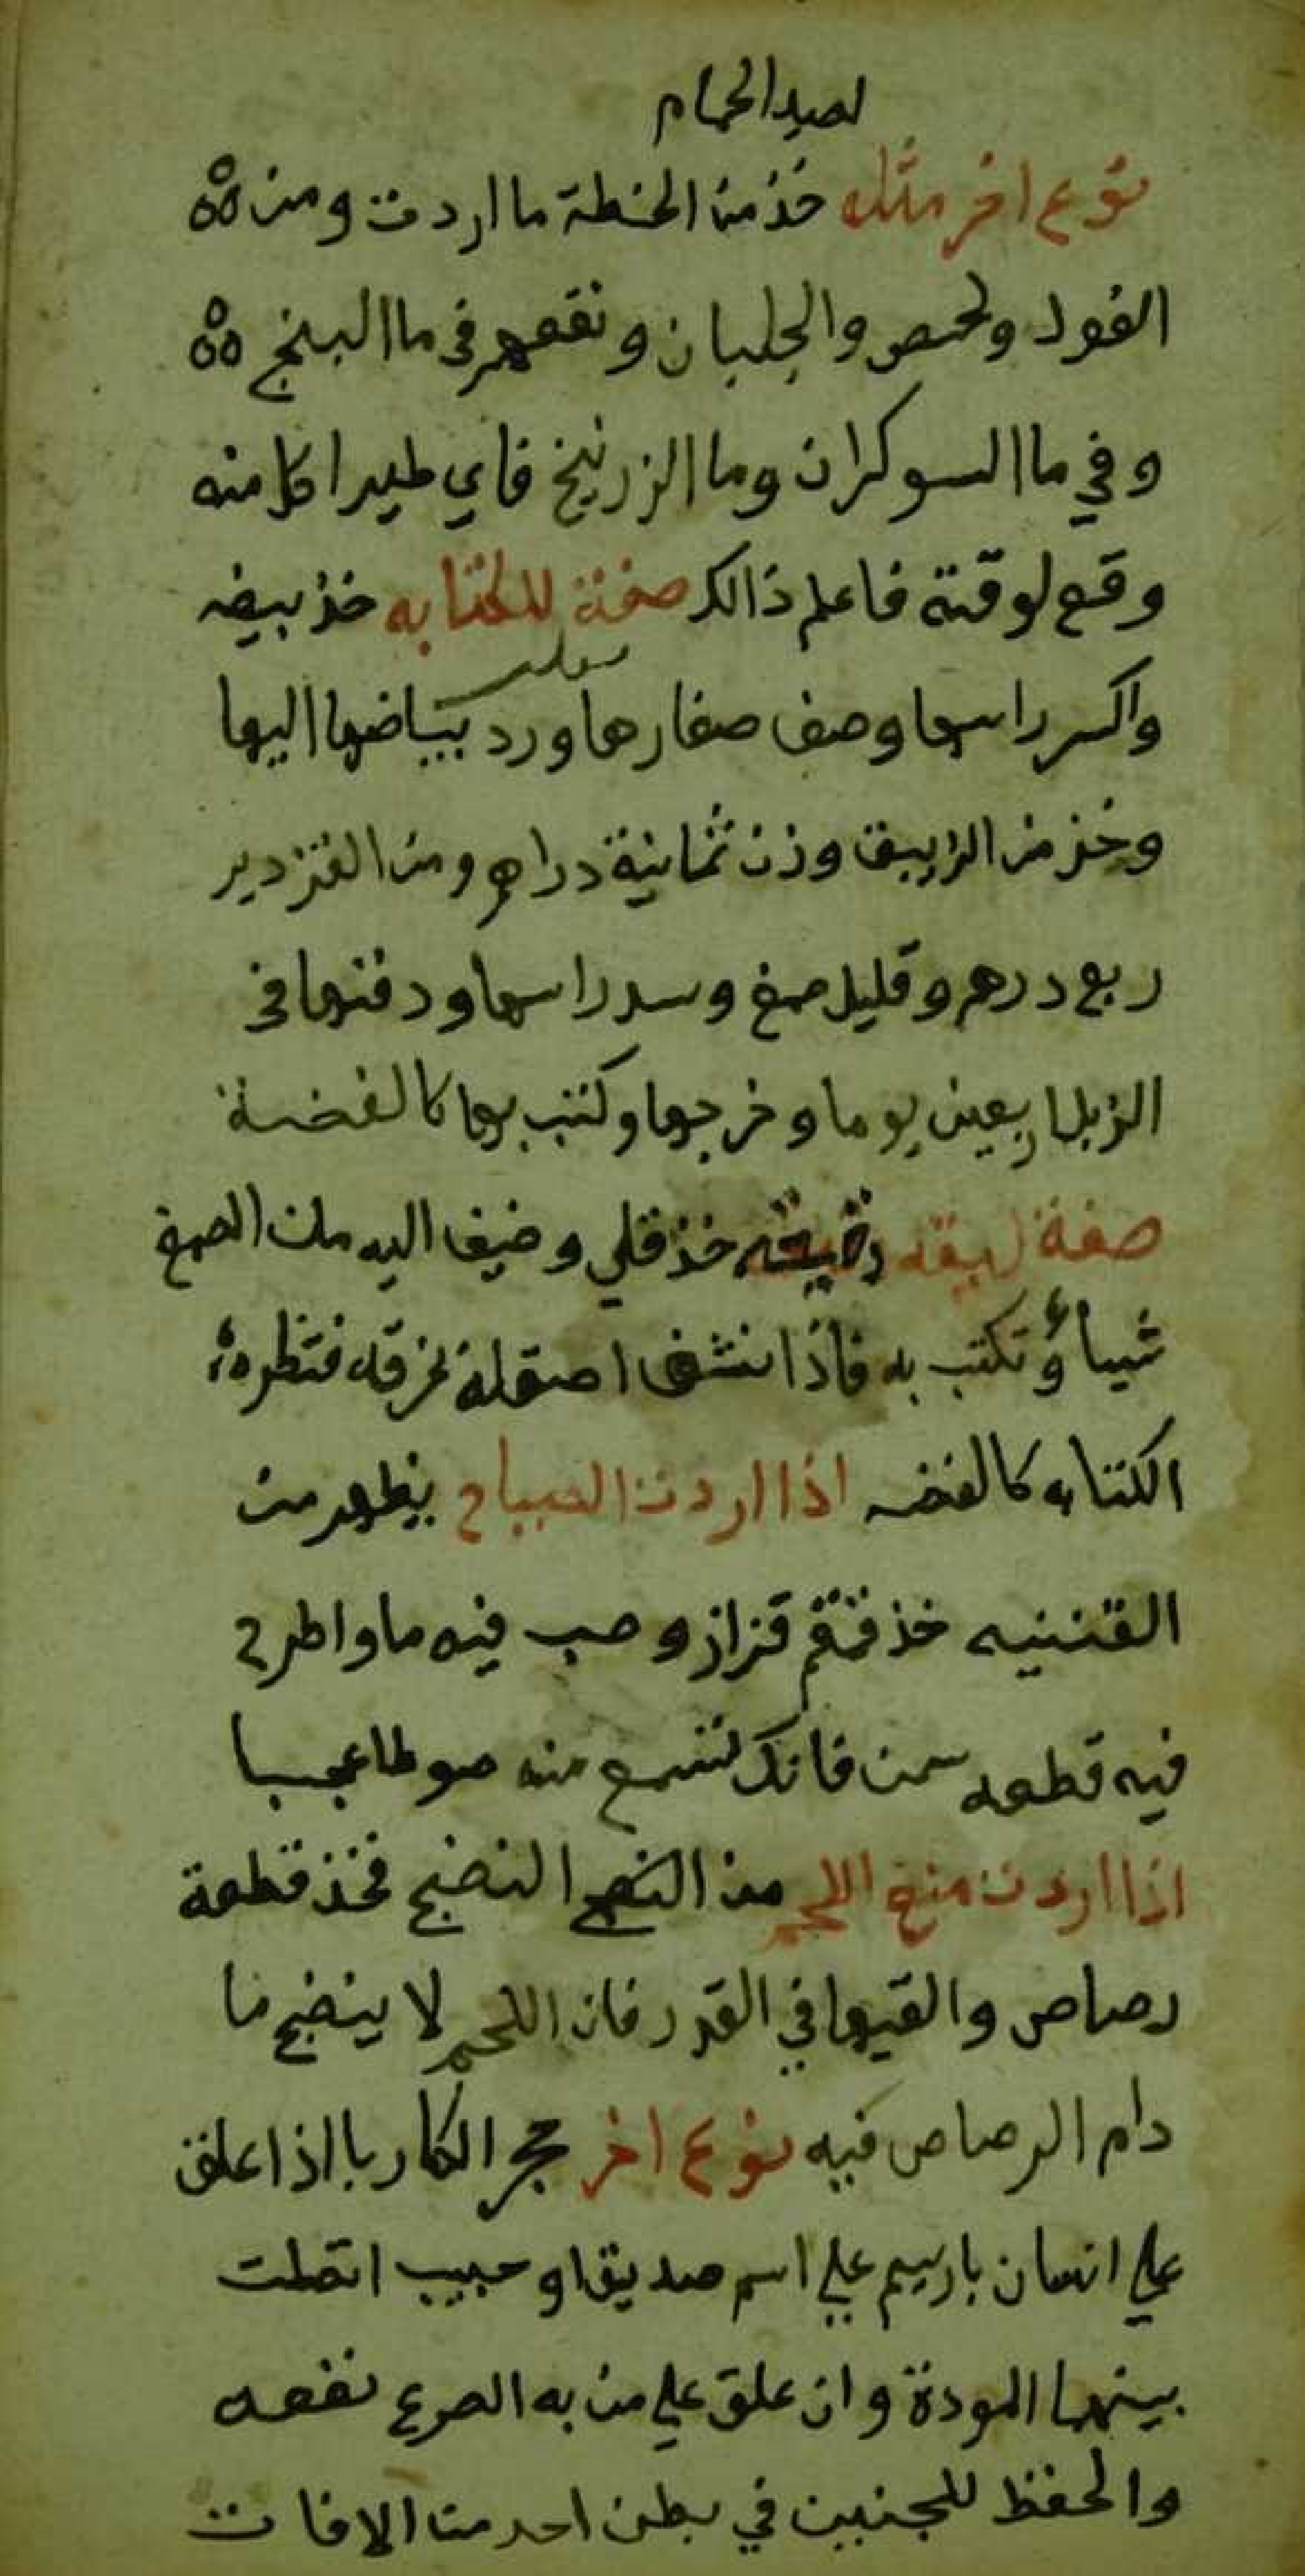 لصيد الحمام
نوع اخر مثله خذ من الحنطة ما اردت ومن
الفول ولحمص والجلبان ونقعهم في ما البنج
وفي ما السوكران وما الزرنيخ فاي طير اكل منه
وقع لوقته فاعلم ذالك صفة للكتابه خذ بيضه
واكسر راسها وصف صفارها ورد بيباضها اليها
وخذ من الزيبق وزن ثمانية دراهم ومن القزدير
ربع درهم وقليل صمغ وسد راسها ودفنها في
الزبل اربعين يوما وخرجها وكتب بها كالفضة
صفة ليقه خذ قلي وضيف اليه من الصمغ
شياء وتكتب به فاذا نشفى اصقله بخرقه فتظره
الكتابه كالفضه اذا اردت الصياح يظهر من
القننيه خذ قمقم قزاز وصب فيه ما واطرح
فيه قطعه سمن فانك تسمع منه صوطا عجبا
اذا اردت منع اللحم من النضج فخذ قطعة
رصاص والقيها في القدر فان اللحم لا ينضج ما
دام الرصاص فيه نوع اخر حجر الكاربا اذا علق
علي انسان باريسم علي اسم صديق او حبيب اتصلت
بينهما المودة وان علق علي من به الصرع نفعه
والحفظ للجنين في بطن احد من الافات